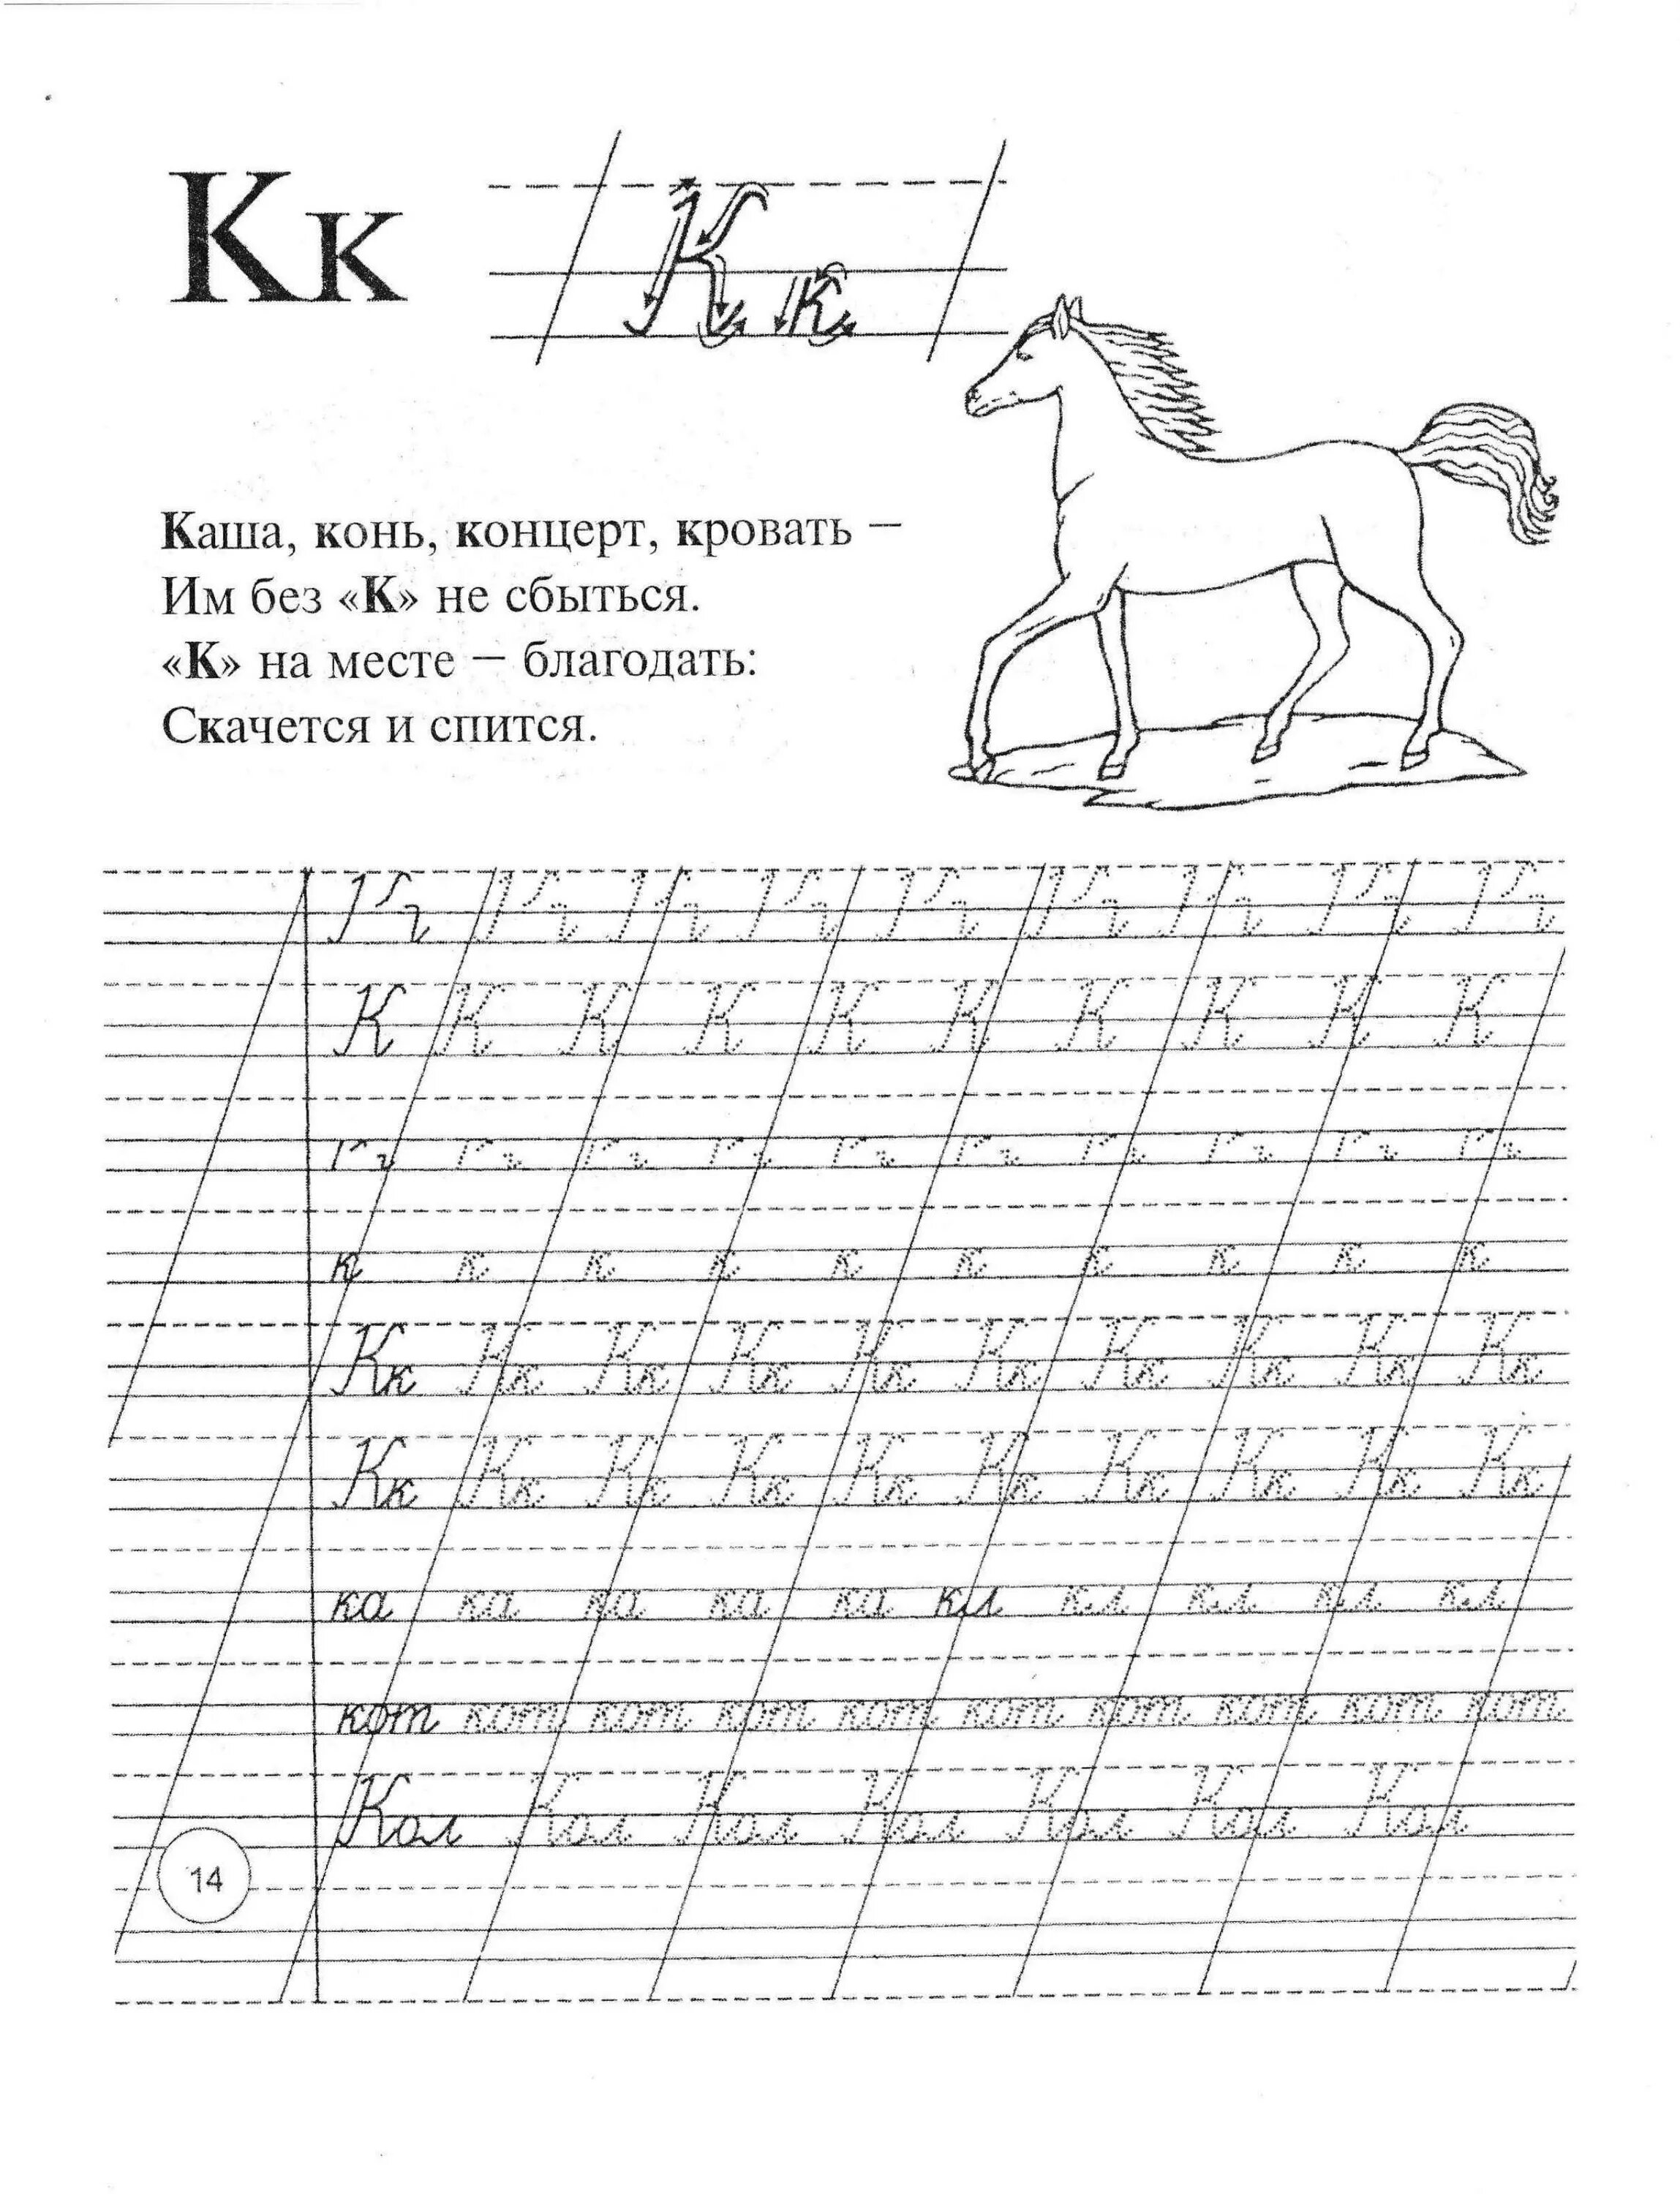 Кк
К к
Каша, конь, концерт, кровать –
Им без «К» не сбыться.
«К» на месте – благодать:
Скачется и спится.
К К К К К К К К К К
к к к к к к к к к к
Кк Кк Кк Кк Кк Кк Кк Кк Кк Кк
Кк Кк Кк Кк Кк Кк Кк Кк Кк Кк
ка ка ка ка ка кл кл кл кл кл
кот кот кот кот кот кот кот кот кот кот
Кол Кол Кол Кол Кол Кол Кол
14